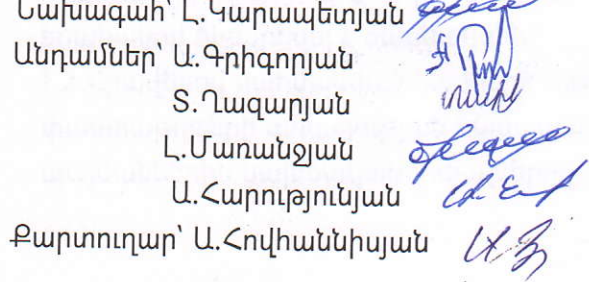 Նախագահ՝ Լ.Կարապետյան
Անդամներ՝ Ա.Գրիգորյան
Տ.Ղազարյան
Լ.Մառանջյան
Ա.Հարությունյան
Քարտուղար՝ Ա.Հովհաննիսյան